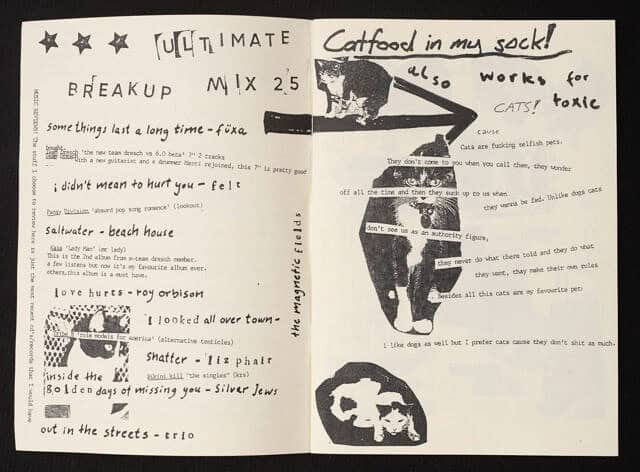 ULTIMATE
BREAKUP MIX 25
some things last a long time - füxa
bought.
Team Dresch 'the new team dresch vs 6.0 beta' 7" 2 tracks
with a new guitarist and a drummer Marci rejoined, this 7" is pretty good
i didn't mean to hurt you - felt
Pansy Division 'absurd pop song romance' (lookout)
saltwater - beach house
Kaia 'Lady Man' (mr lady)
This is the 2nd album from x-team dresch member.
a few listens but now it's my favourite album ever.
others, this album is a must have.
love hurts - roy orbison
I looked all over town -
the magnetic fields
Tribe 8 'role models for america' (alternative tenticles)
shatter - liz phair
bikini kill 'the singles' (krs)
inside the
golden days of missing you - Silver Jews
out in the streets - trio
MUSIC REVIEWS! The stuff I choose to review here is just the most recent cd's/records that I would have
Catfood in my sock!
also works for
toxic
CATS!
cause
Cats are fucking selfish pets.
They don't come to you when you call them, they wonder
off all the time and then they suck up to us when
they wanna be fed. Unlike dogs cats
don't see us as an authority figure,
they never do what there told and they do what
they want, thay make their own rules
. Besides all this cats are my favourite pet.
i like dogs as well but I prefer cats cause they don't shit as much.